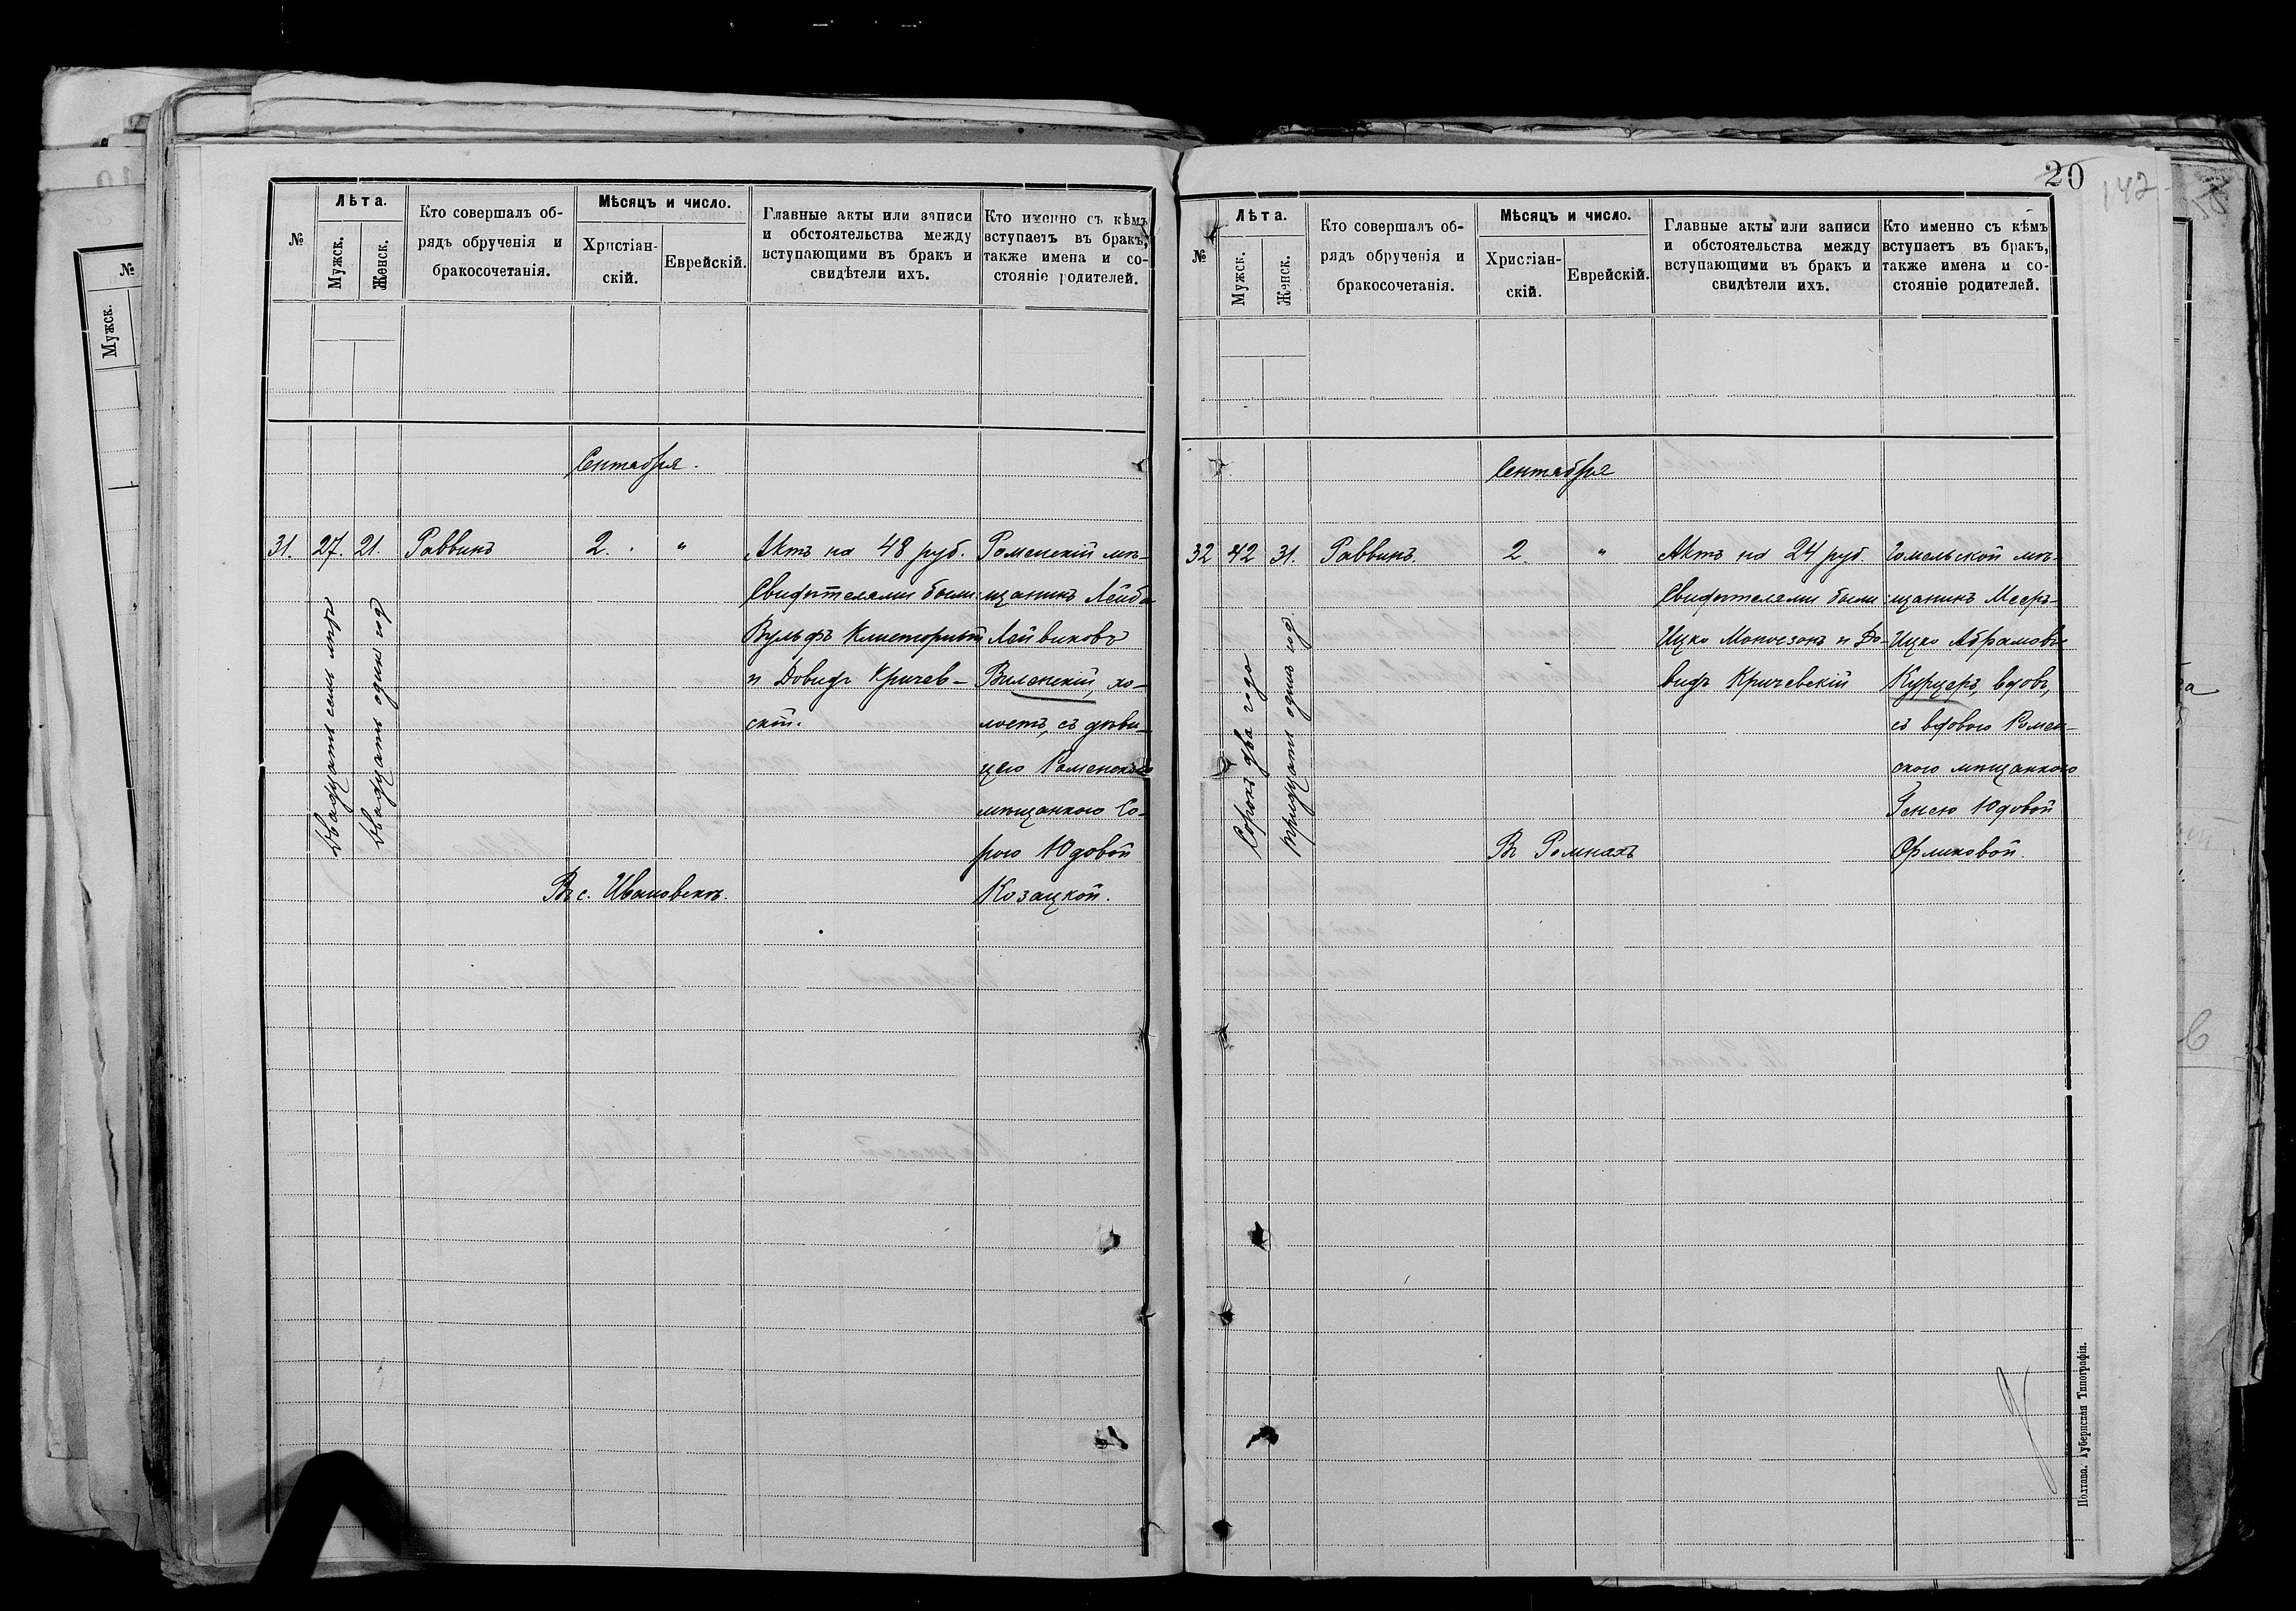 №
Лѣта.
Мужск.
Женск.
Кто совершалъ об-
рядъ обрученія и
бракосочетанія.
Мѣсяцъ и число.
Христіан-
скій.
Еврейскій.
Главные акты или записи
и обстоятельства между
вступающими въ бракъ и
свидѣтели ихъ.
Кто именно съ кѣмъ
вступаетъ въ бракъ,
также имена и со-
стояніе родителей.
Сентября.
31.
27.
Двадцать семь лѣтъ
21.
Двадцать одинъ годъ
Раввинъ
2.
"
Въ с. Ивановскѣ.
Актъ на 48 руб.
Свидѣтелями были
Вульфъ
и Довидъ Кричев-
скій.
Роменскій мѣ-
щанинъ Лейба
Лейвиковъ
Виленскій, хо-
лостъ, съ дѣви-
цею Роменскою
мѣщанкою Со-
рою Юдовой
Козацкой.
20
142
№
Лѣта.
Мужск.
Женск.
Кто совершалъ об-
рядъ обрученія и
бракосочетанія.
Мѣсяцъ и число.
Христіан-
скій.
Еврейскій.
Главные акты или записи
и обстоятельства между
вступающими въ бракъ и
свидѣтели ихъ.
Кто именно съ кѣмъ
вступаетъ въ бракъ,
также имена и со-
стояніе родителей.
Сентября
32
42
Сорокъ два года
31.
тридцать одинъ годъ
Раввинъ.
2.
"
Въ Ромнахъ
Актъ на 24 руб.
Свидѣтелями были
Ицко и До-
видъ Кричевскій
Гомельской мѣ-
щанинъ Мееръ-
Ицко Абрамовъ
Курцеръ, вдовъ,
съ вдовою Ромен-
ского мѣщанкою
Генею Юдовой
Орликовой.
Полтава. Губернская Типографія.
№
Мужск.